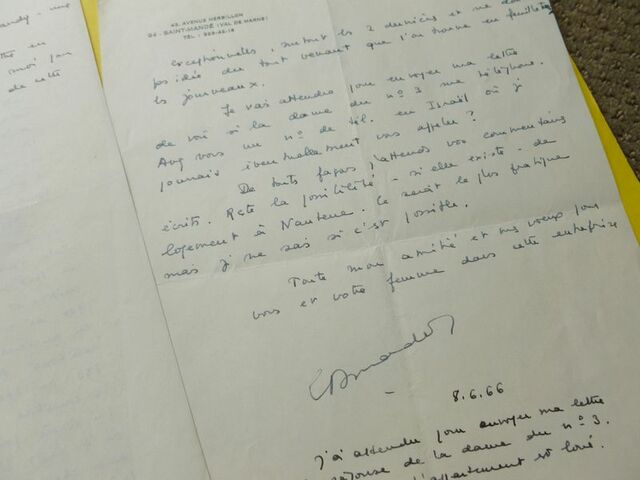 43, AVENUE HERBILLON
94 - SAINT-MANDÉ (VAL DE MARNE)
TEL : 923-45-16
exceptionnelles, surtout les 2 derniers et ne donnent
pas idée du tout venant que l'on trouve en feuilletant
les journeaux.
Je vais attendre pour envoyer ma lettre
de voir si la dame du nº 3 me téléphone.
Avez vous un nº de tél. en Israël où je
pourrais éventuellement vous appeler ?
De toute façon j'attends vos commentaires
écrits. Reste la possibilité - si elle existe - de
logement à Nanterre. Ce serait le plus pratique
mais je ne sais si c'est possible.
Toute mon amitié et mes voeux pour
vous et votre femme dans cette entreprise
8.6.66
J'ai attendu pour envoyer ma lettre
réponse de la dame du nº 3.
l'appartement est loué.
moi
de cette